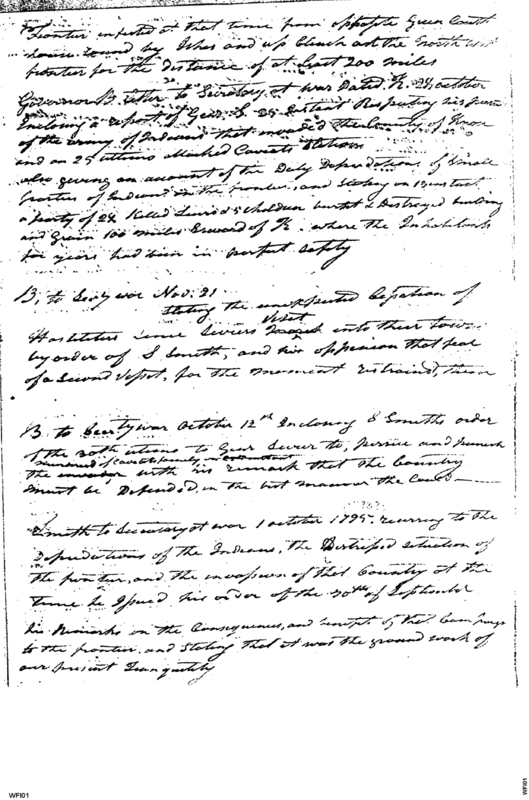 frontier infested at that time from opposite Green Court
house round by and up Clinch and the North west
frontier for the distance of at least 200 miles
Governor B. letter to Secretary at war Dated K. 24 october
Inclosing a report of Genl S. 25 Instant Respecting his
of the army of Indians that invaded the County of Knox
and on 25 ultimo attacked Cavets Station
also giving an account of the Daly Depredations of Small
parties of Indians on the frontier, and Stating on 12 instant
a party of 28 Killed Lewis's 5 children burnt & Destroyed
and Grain 100 miles Eward of K. where the Inhabitants
for years had been in perfect safety
B, to Secty war Nov. 21
Stating the unexpected Cesation of
Hostilities since Seviers Visit into their towns
by order of S Smith, and his oppinion that fear
of a Second Visit, for the moment restrained them
B to Secty war October 12th Inclosing S Smiths order
of the 30th ultimo to Genl Sevier to, pursue and punish
the with his remark that the Country
must be Defended, in the best manner the Could
Smith to Secretary at war 1 october 1795. recurring to the
Depredations of the Indians, the Distressed Situation of
the frontier, and the invasion of that Country at the
time he Issued his order of the 30th of September
his Remarks on the Consequences, and benefit of that Campaign
to the frontier, and Stating that it was the ground work of
our present Tranquility
WFI01
WFI01